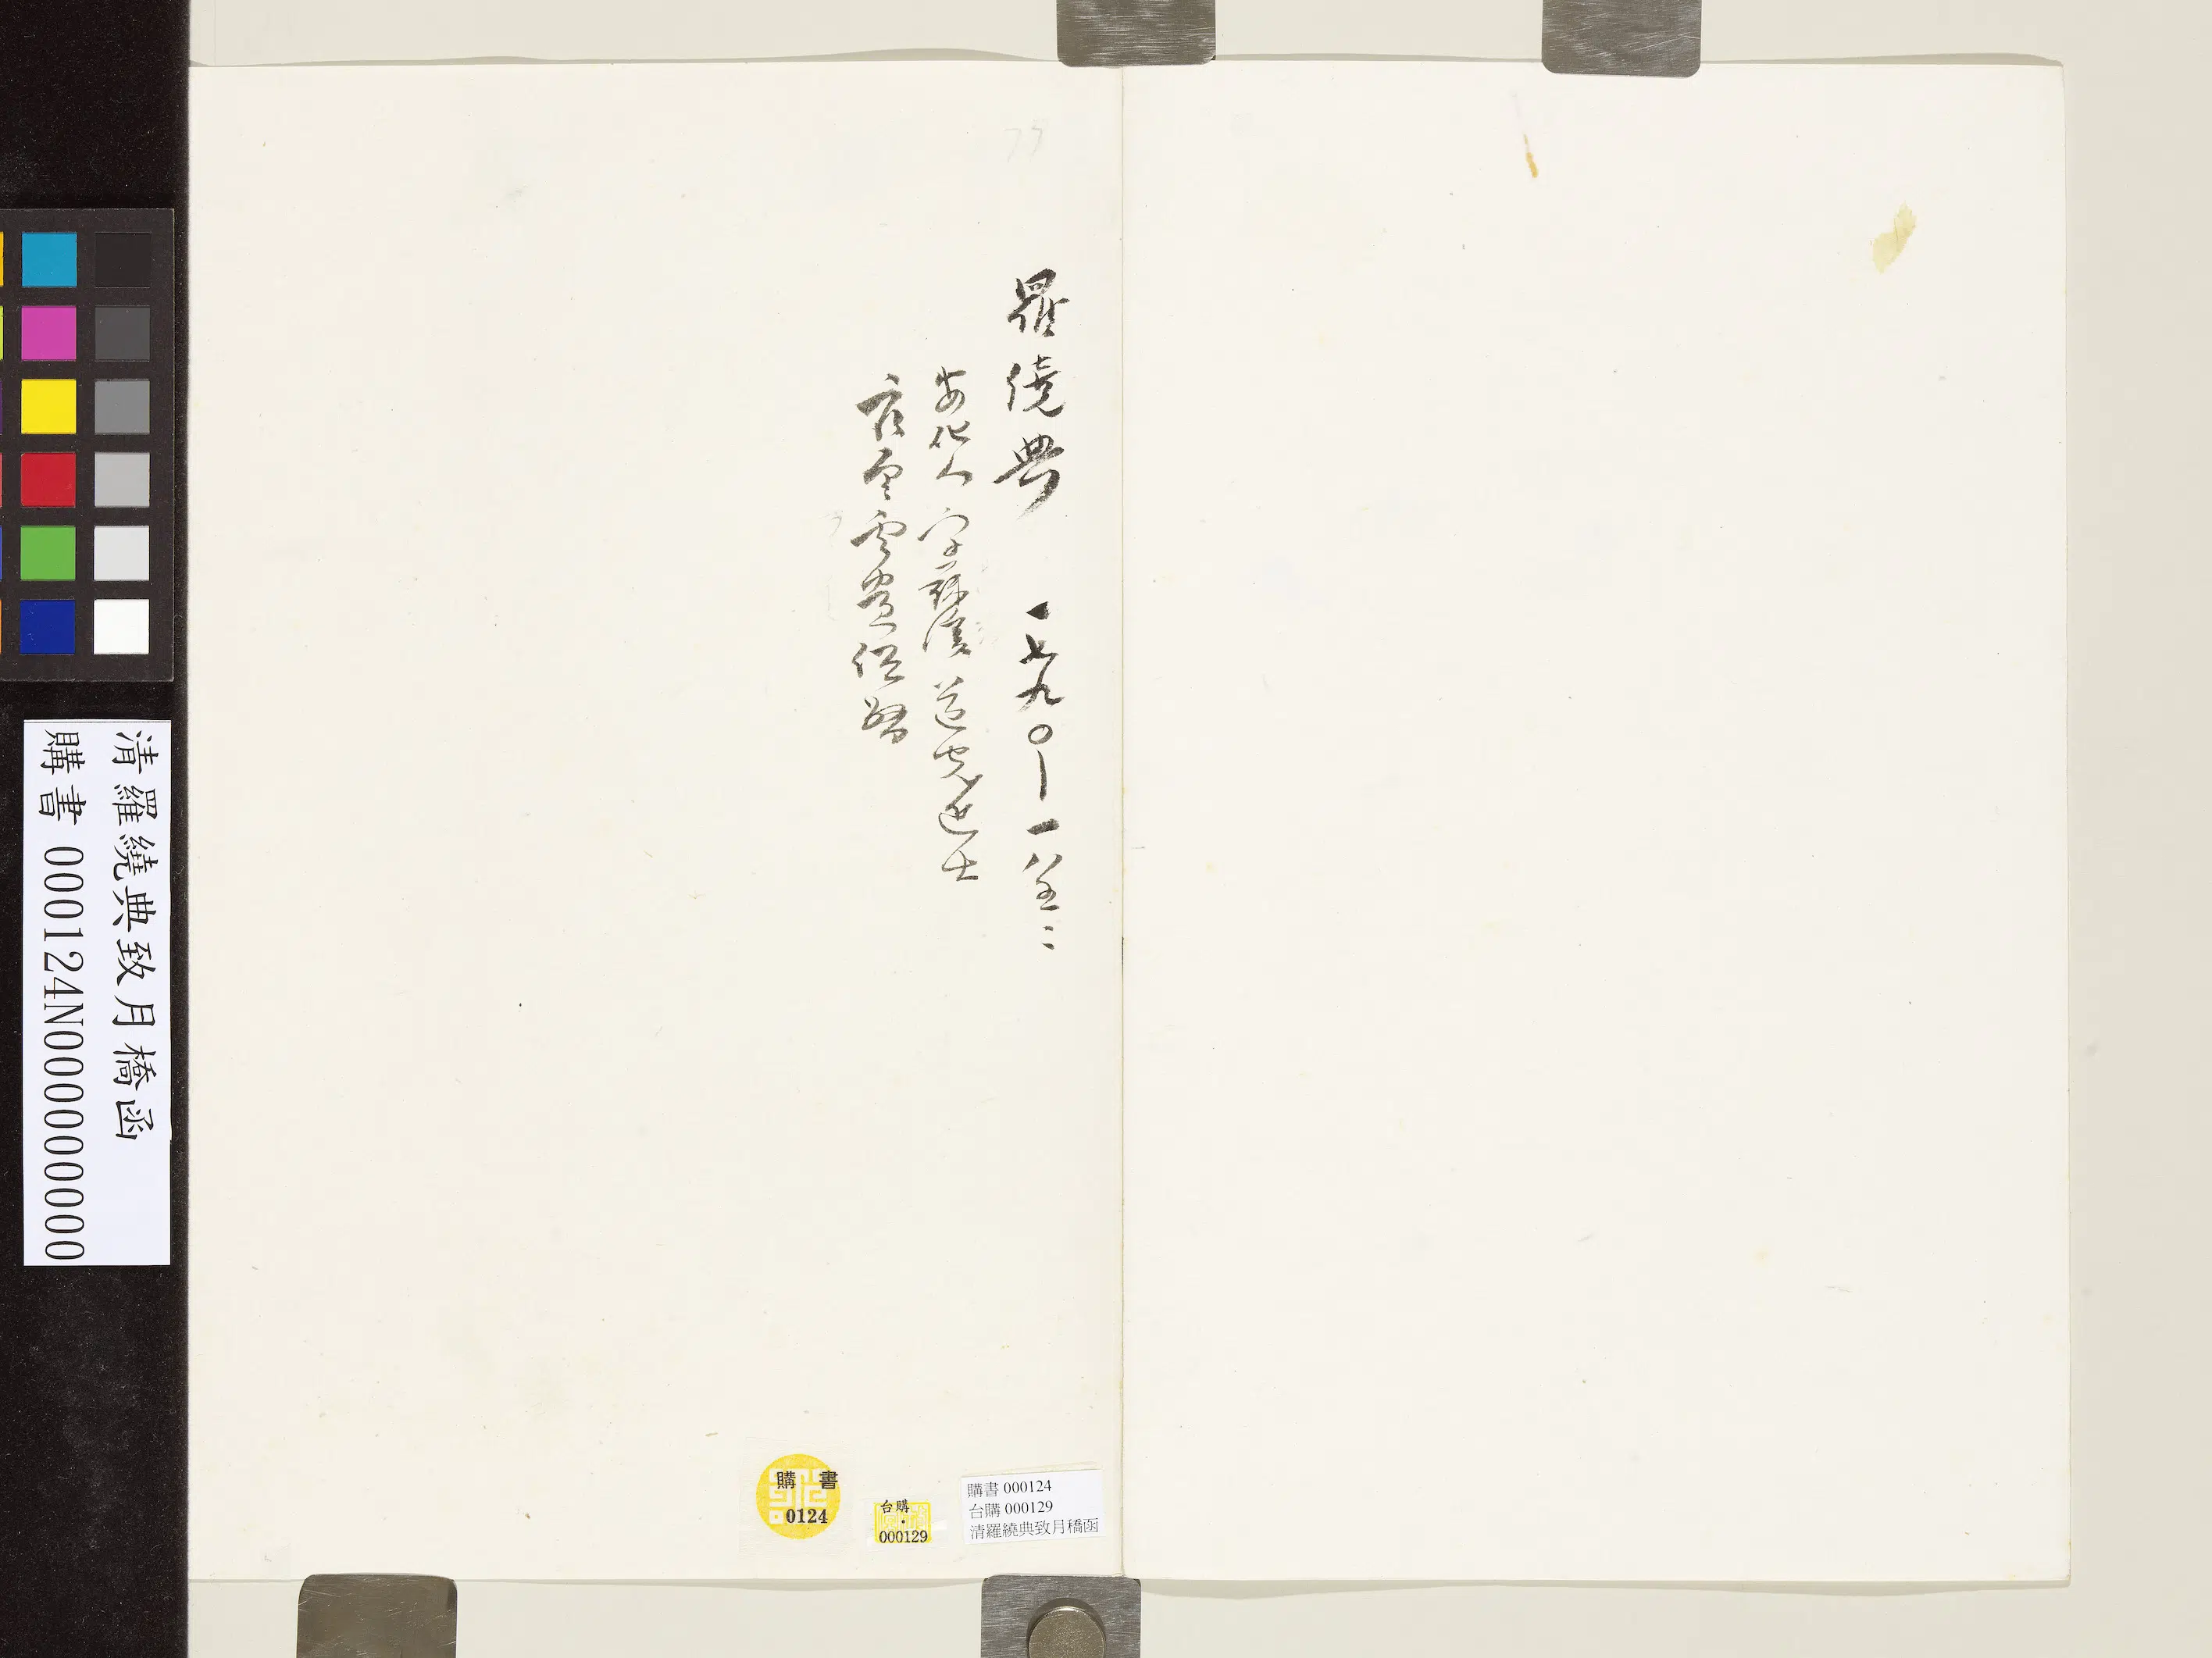 羅繞典 一七九〇—一八五二
安化人 字蘇溪 道光進士
雲貴總督
清羅繞典致月橋函
購書 000124N000000000
購 書
0124
台購
·
000129
購書 000124
台購 000129
清羅繞典致月橋函